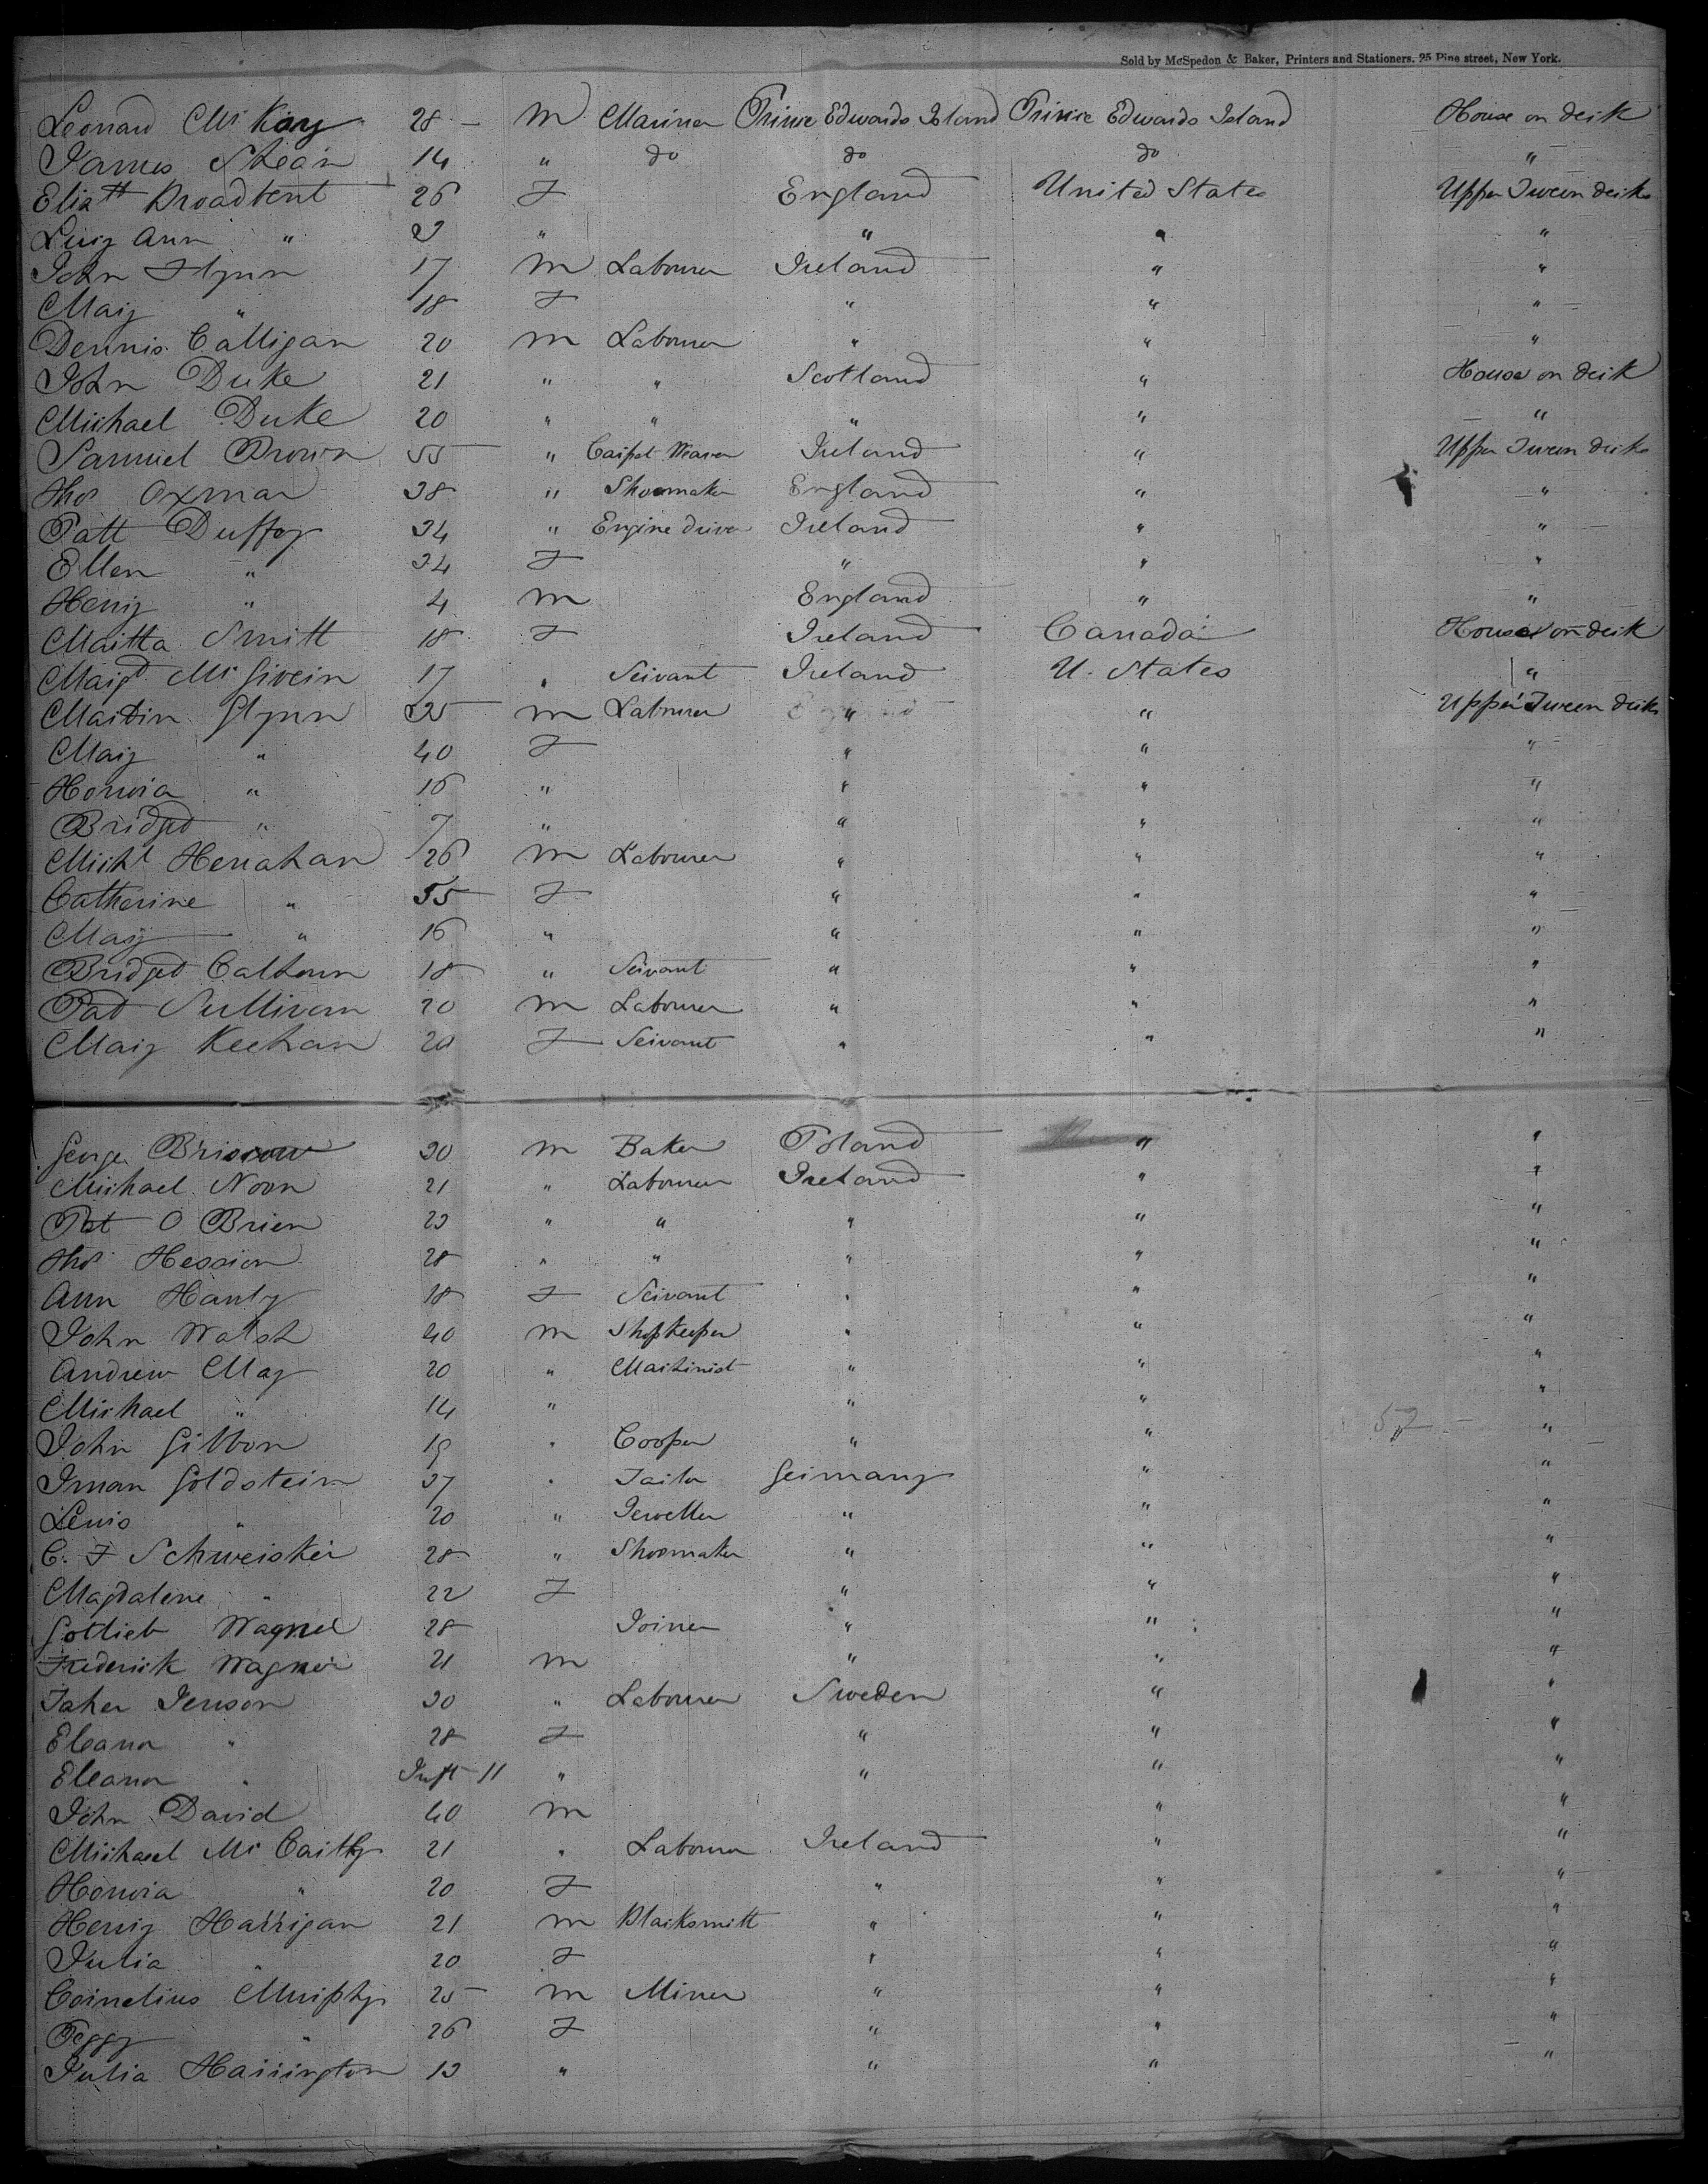 Sold by McSpedon & Baker, Printers and Stationers. 25 Pine street, New York.
Leonard McKay 28 M Mariner Prince Edwards Island Prince Edwards Island House on deck
James Shean 14 " do do do "
Elizth Broadbent 26 F England United States Upper Tween decks
Lucy Ann " 23 " " " "
John Flynn 17 M Labourer Ireland " "
Mary " 18 F " " "
Dennis Calligan 20 M Labourer " " "
John Duke 21 " " Scotland " House on deck
Michael Duke 20 " " " " "
Samuel Brown 55 " Carpet Weaver Ireland " Upper Tween decks
Thos Oxman 38 " Shoemaker England " "
Patt Duffey 34 " Engine driver Ireland " "
Ellen " 34 F " " "
Henry " 4 M England " "
Martha Smith 18 F Ireland Canada House on deck
Margt McGivern 17 " Servant Ireland U. States "
Martin Glynn 35 M Labourer " " Upper Tween decks
Mary " 40 F " " "
Honora " 16 " " " "
Bridget " 7 " " " "
Michl Henahan 26 M Labourer " " "
Catherine " 55 F " " "
Mary " 16 " " " "
Bridget Calhoun 18 " Servant " " "
Pat Sullivan 20 M Labourer " " "
Mary Keehan 20 F Servant " " "
George 30 M Baker Poland " "
Michael Noon 21 " Labourer Ireland " "
Pat O Brien 23 " " " " "
Thos Hession 28 " " " " "
Ann Hanly 18 F Servant " " "
John Walsh 40 M Shopkeeper " " "
Andrew May 20 " Machinist " " "
Michael " 14 " " " "
John Gibbon 19 " Cooper " " "
Iman Goldstein 37 " Tailor Germany " "
Lewis " 20 " Jeweller " " "
C. F Schweisker 28 " Shoemaker " " "
Magdalene " 22 F " " "
Gottlieb Wagner 28 Joiner " " "
Frederick Wagner 21 M " " "
Jaher Jenson 30 " Labourer Sweden " "
Eleanor " 28 F " " "
Eleanor " Inft 11 " " " "
John David 40 M " "
Michael McCarthy 21 " Labourer Ireland " "
Honora " 20 F " " "
Henry Harrigan 21 M Blacksmith " " "
Julia " 20 F " " "
Cornelius Murphy 25 M Miner " " "
Peggy " 26 F " " "
Julia Harrington 13 " " " "